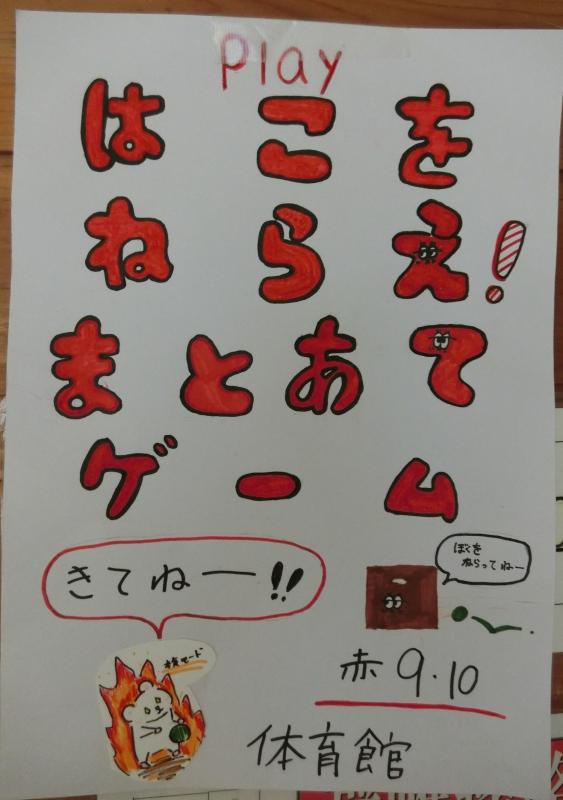 Play
はこを
ねらえ!
まとあて
ゲーム
きてねー!!
ぼくを
ねらってねー
本気モード
赤9・10
体育館